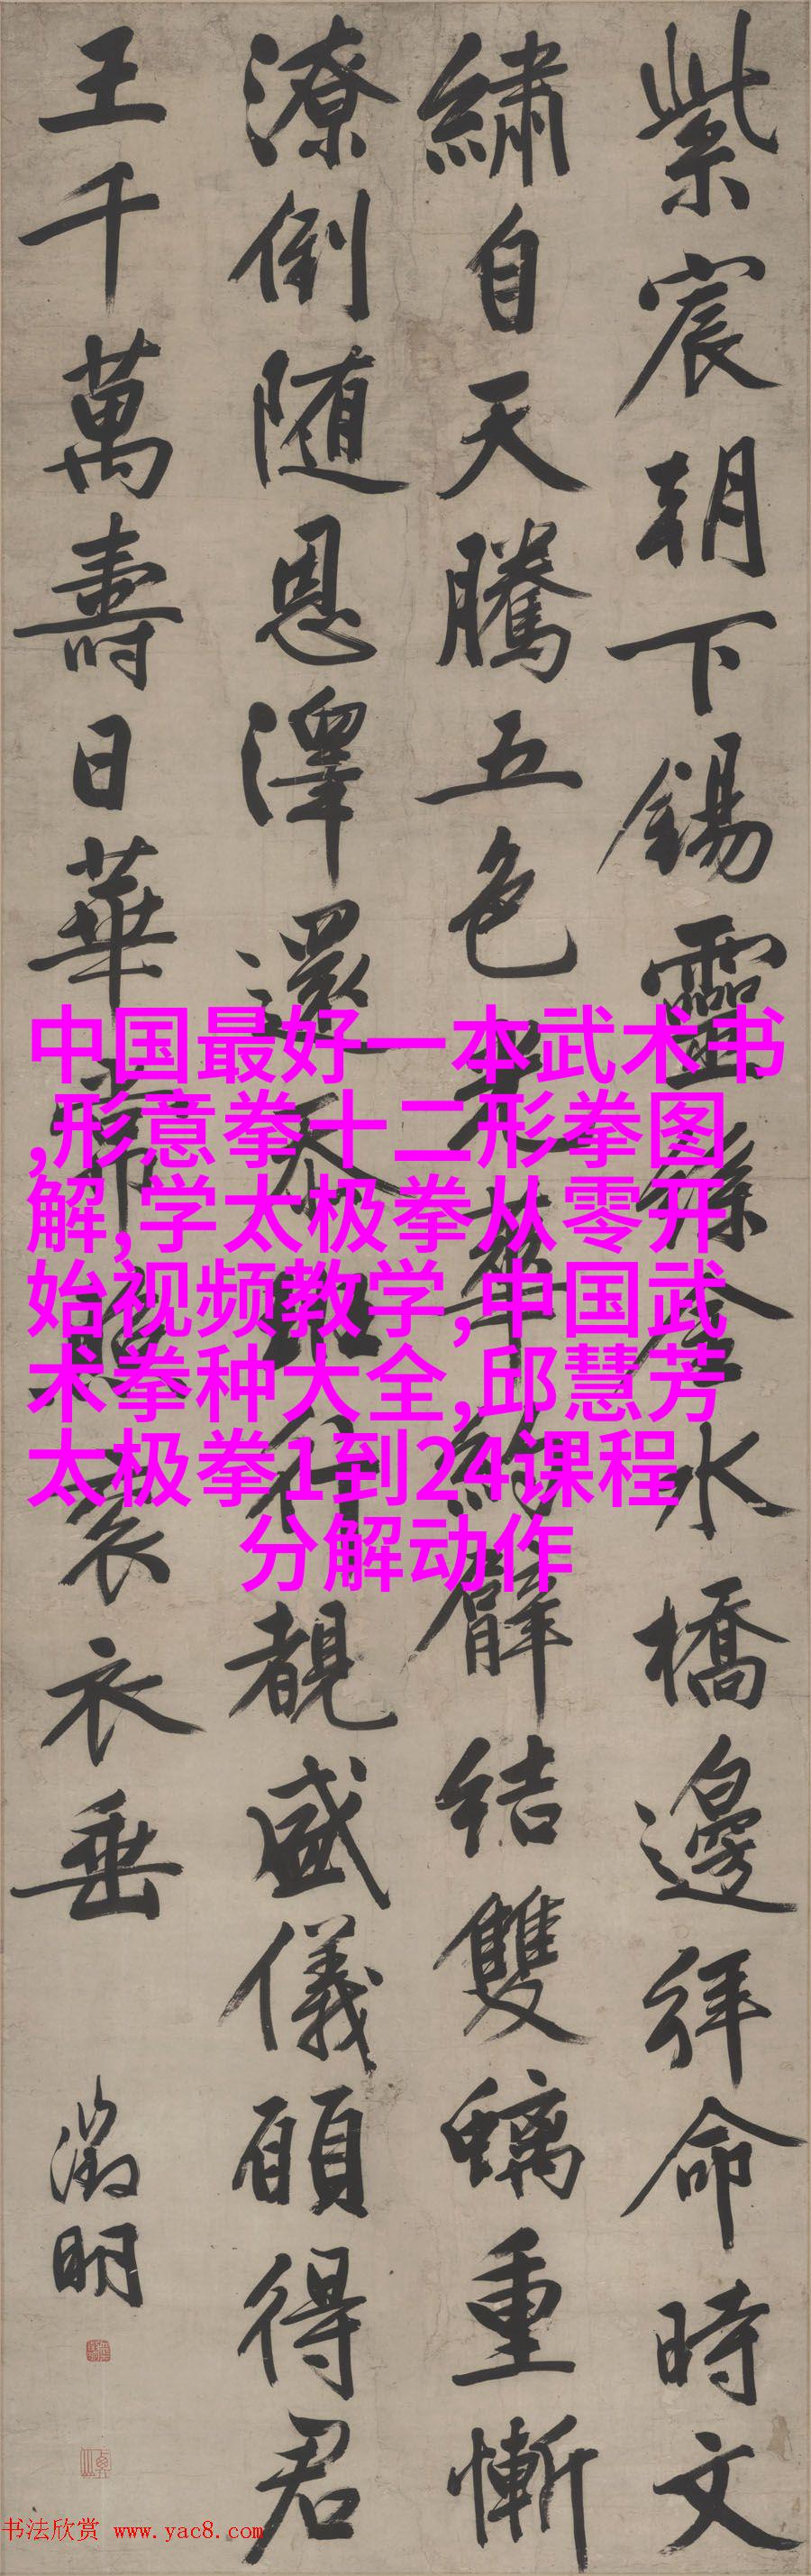 紫宸朝下錫靈絲金水橋邊拜命時文
繡自天騰五色光華約臂結雙螭重慚
潦倒随恩澤還忝班行覩盛儀願得君
王千萬壽日華常照袞衣垂
徵明
中国最好一本武术书
,形意拳十二形拳图
解,学太极拳从零开
始视频教学,中国武
术拳种大全,邱慧芳
太极拳1到24课程
分解动作
书法欣赏 www.yac8.com